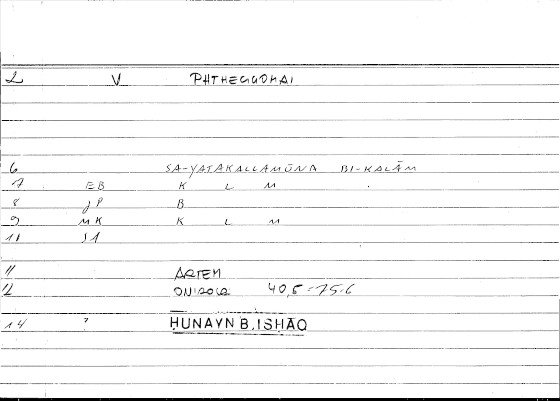 2 V PHTHEGGOMAI
6 SA-YATAKALLAMŪNA BI-KALĀM
7 EB K L M
8 JP B
9 MK K L M
10 SA
11 ARTEM
12 ONIROCR 40,5 = 75.6
14 ? HUNAYN B. ISHAQ